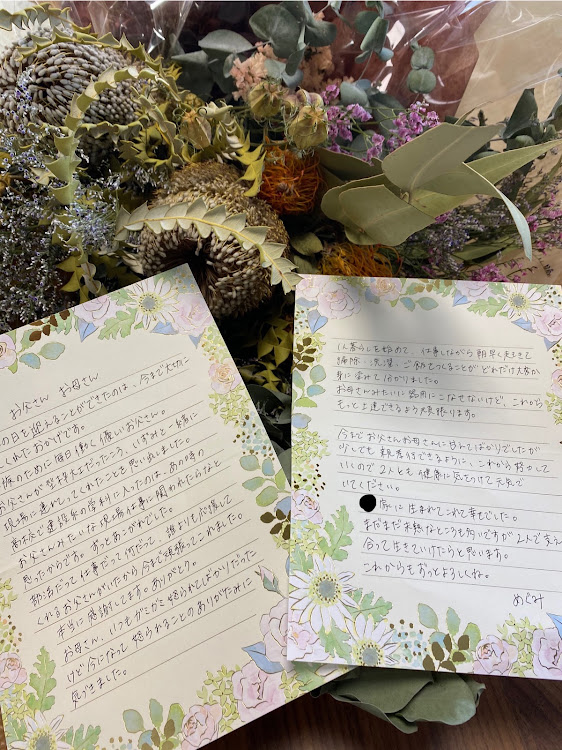 お父さん お母さん
の日を迎えることができたのは、今まで大切に
してくれたおかげです。
家族のために毎日働く優しいお父さん。
お父さんが型枠大工だったころ、いずみと一緒に
現場に連れてってくれたことを思い出しました。
高校で建設系の学科に入ったのは、あの時の
お父さんみたいな現場仕事に関われたらなと
思ったからです。ずっとあこがれでした。
部活だって仕事だって何だって、誰よりも応援して
くれるお父さんがいたから今まで頑張ってこれました。
本当に感謝してます。ありがとう。
お母さん、いつもガミガミ怒られてばかりだった
けど今になって怒られることのありがたみに
気づきました。
1人暮らしを始めて、仕事しながら朝早く起きて
掃除、洗濯、ご飯をつくることがどれだけ大変か
身に染みて分かりました。
お母さんみたいに器用にこなせないけど、これから
もっと上達できるよう頑張ります。
今までお父さんお母さんに甘えてばかりでしたが
少しでも親孝行できるように、これから
いくので2人とも健康に気をつけて元気で
いてください。
家に生まれてこれて幸せでした。
まだまだ未熟なところも多いですが2人で支え
合って生きていけたらと思います。
これからもずっとよろしくね。
めぐみ